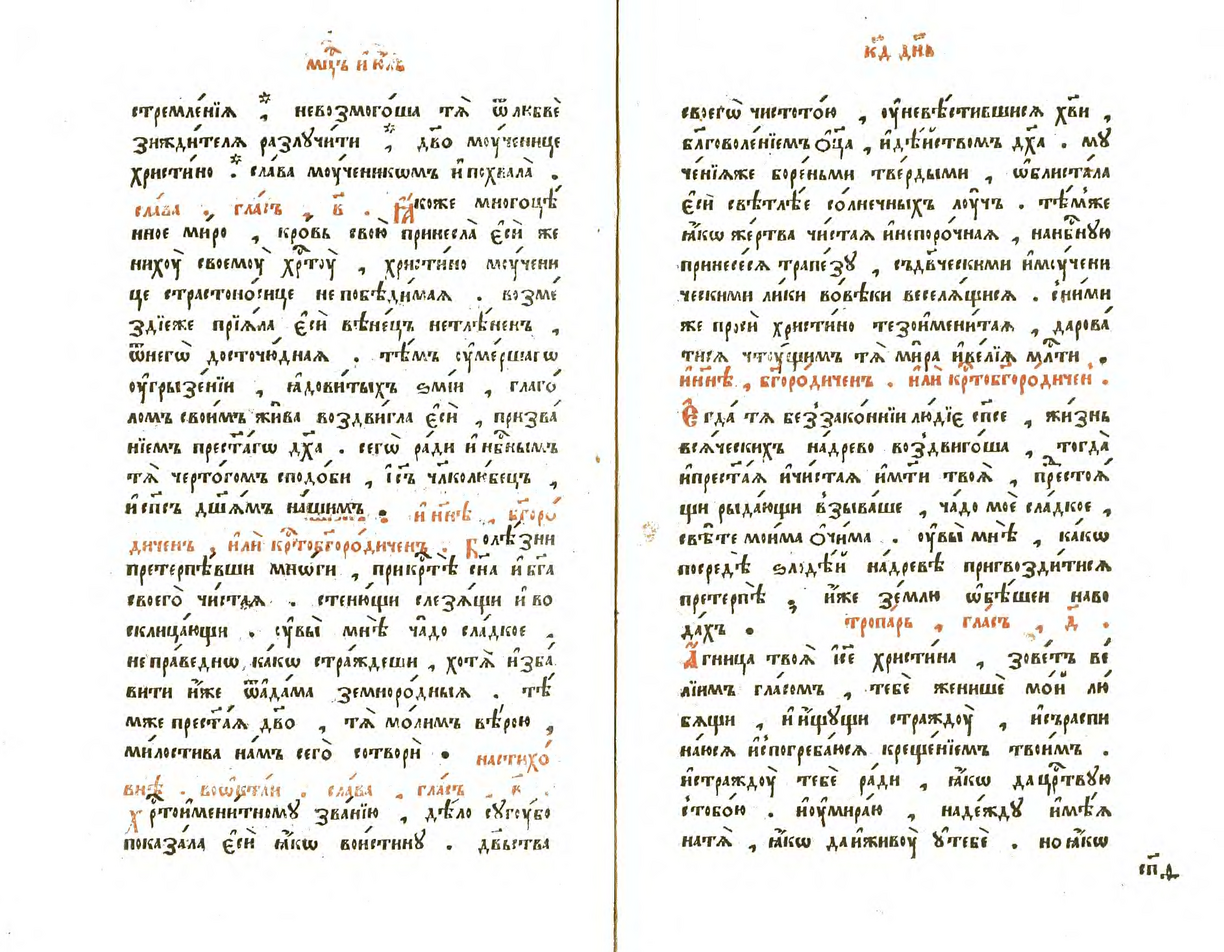 мц҃ъ и҆ ю҆́лъ
стремле́нїѧ ⁎, невозмого́ша тѧ̀ ѿ любве̏
зижди́телѧ разлꙋчи́ти ⁎, дв҃о мꙋ́ченице
христи́но ⁎. сла́ва мꙋ́ченикѡмъ и҆ похвала̀ .
сла́ва . гла́съ , в҃ . Ꙗ҆́коже многоцѣ́
нное мѵ́ро , кро́вь свою̀ принесла̀ є҆сѝ же
нихꙋ̀ своемꙋ̀ хрⷭ҇тꙋ̀ , христи́но мꙋ́чени
це страстоно́сице непобѣди́маѧ . возме́
здїеже прїѧ́ла є҆сѝ вѣне́цъ нетлѣ́ненъ ,
ѿнегѡ̀ досточю́днаѧ . тѣ́мъ ᲂу҆ме́ршагѡ
ᲂу҆грызе́нїи , ꙗ҆дови́тыхъ ѕмїи̑ , глаго́
ломъ свои́мъ жи́ва воздви́гла є҆сѝ , призва́
нїемъ прест҃а́гѡ дх҃а . сегѡ̀ ра́ди и҆ нбⷭ҇нымъ
тѧ̀ черто́гомъ сподо́би , і҆с҃ъ чл҃колю́бецъ ,
и҆ сп҃съ дш҃а́мъ на́шимъ . и҆ нн҃ѣ , бг҃оро́
диченъ , и҆лѝ крⷭ҇тобг҃оро́диченъ . Б олѣ́зни
претерпѣ́вши мнѡ́ги , прикрⷭ҇тѣ̀ сн҃а и҆ бг҃а
своего̀ чи́стаѧ . стеню́щи слезѧ́щи и҆ во
склица́ющи . ᲂу҆вы̀ мнѣ̀ ча́до сла́дкое ,
непра́веднѡ ка́кѡ стра́ждеши , хотѧ̀ и҆зба́
вити и҆̀же ѿада́ма земноро́дныѧ . тѣ́
мже прест҃а́ѧ дв҃о , тѧ̀ мо́лимъ вѣ́рою ,
ми́лостива на́мъ сего̀ сотворѝ . настихо́
внѣ . воѡби́тели . сла́ва . гла́съ .
Х рⷭ҇тоимени́тномꙋ зва́нїю , дѣ́ло сꙋгꙋ́бо
показа́ла є҆сѝ ꙗ҆́кѡ вои́стинꙋ . дв҃ьства
к҃д дн҃ѧ
своегѡ̀ чистото́ю , ᲂу҆невѣ́стившисѧ хв҃и ,
бл҃говоле́нїемъ ѻ҆ц҃а̀ , и҆дѣ́йствомъ дх҃а . мꙋ
че́нїѧже боре́ньми тве́рдыми , ѡ҆блиста́ла
є҆сѝ свѣтлѣ́е со́лнечныхъ лꙋ́чъ . тѣ́мже
ꙗ҆́кѡ же́ртва чи́стаѧ и҆непоро́чнаѧ , нанбⷭ҇нꙋю
принесе́сѧ трапе́зꙋ , съдв҃ческими и҆мꙋ́чени
ческими ли́ки вовѣ́ки веселѧ́щисѧ . сни́ми
же просѝ христи́но тезоимени́таѧ , дарова́
тисѧ чтꙋ́щимъ тѧ̀ ми́ра и҆ве́лїѧ мл҃ти .
и҆нн҃ѣ , бг҃оро́диченъ . и҆лѝ крⷭ҇тобг҃оро́диченъ .
Є҆ гда̀ тѧ̀ беззако́ннїи лю́дїе сп҃се , жи́знь
всѧ́ческихъ на́древо воздвиго́ша , тогда̀
и҆прест҃а́ѧ и҆чи́стаѧ и҆мт҃и твоѧ̀ , престоѧ́
щи рыда́ющи взыва́ше , ча́до моѐ сла́дкое ,
свѣ́те мои́ма ѻ҆́чима . ᲂу҆вы̀ мнѣ̀ , ка́кѡ
посредѣ̀ ѕлодѣ́й на́древѣ пригвозди́тисѧ
претерпѣ̀ ; и҆́же зе́млю ѡ҆бѣ́шеи наво
да́хъ . тропа́рь , гла́съ , д҃ .
А҆́ гница твоѧ̀ і҆с҃е христи́на , зове́тъ ве́
лїимъ гла́сомъ , тебѐ женишѐ мо́й лю
бѧ́щи , и҆ и҆́щꙋщи стра́ждꙋ , и҆съраспи
на́юсѧ и҆спогреба́юсѧ креще́нїемъ твои́мъ .
и҆стра́ждꙋ тебѐ ра́ди , ꙗ҆́кѡ дацрⷭ҇твꙋю
стобо́ю . и҆ᲂумира́ю , наде́ждꙋ и҆мѣ́ѧ
натѧ̀ , ꙗ҆́кѡ даи҆живꙋ̀ ᲂу҆тебѐ . но ꙗ҆́кѡ
сп҃д